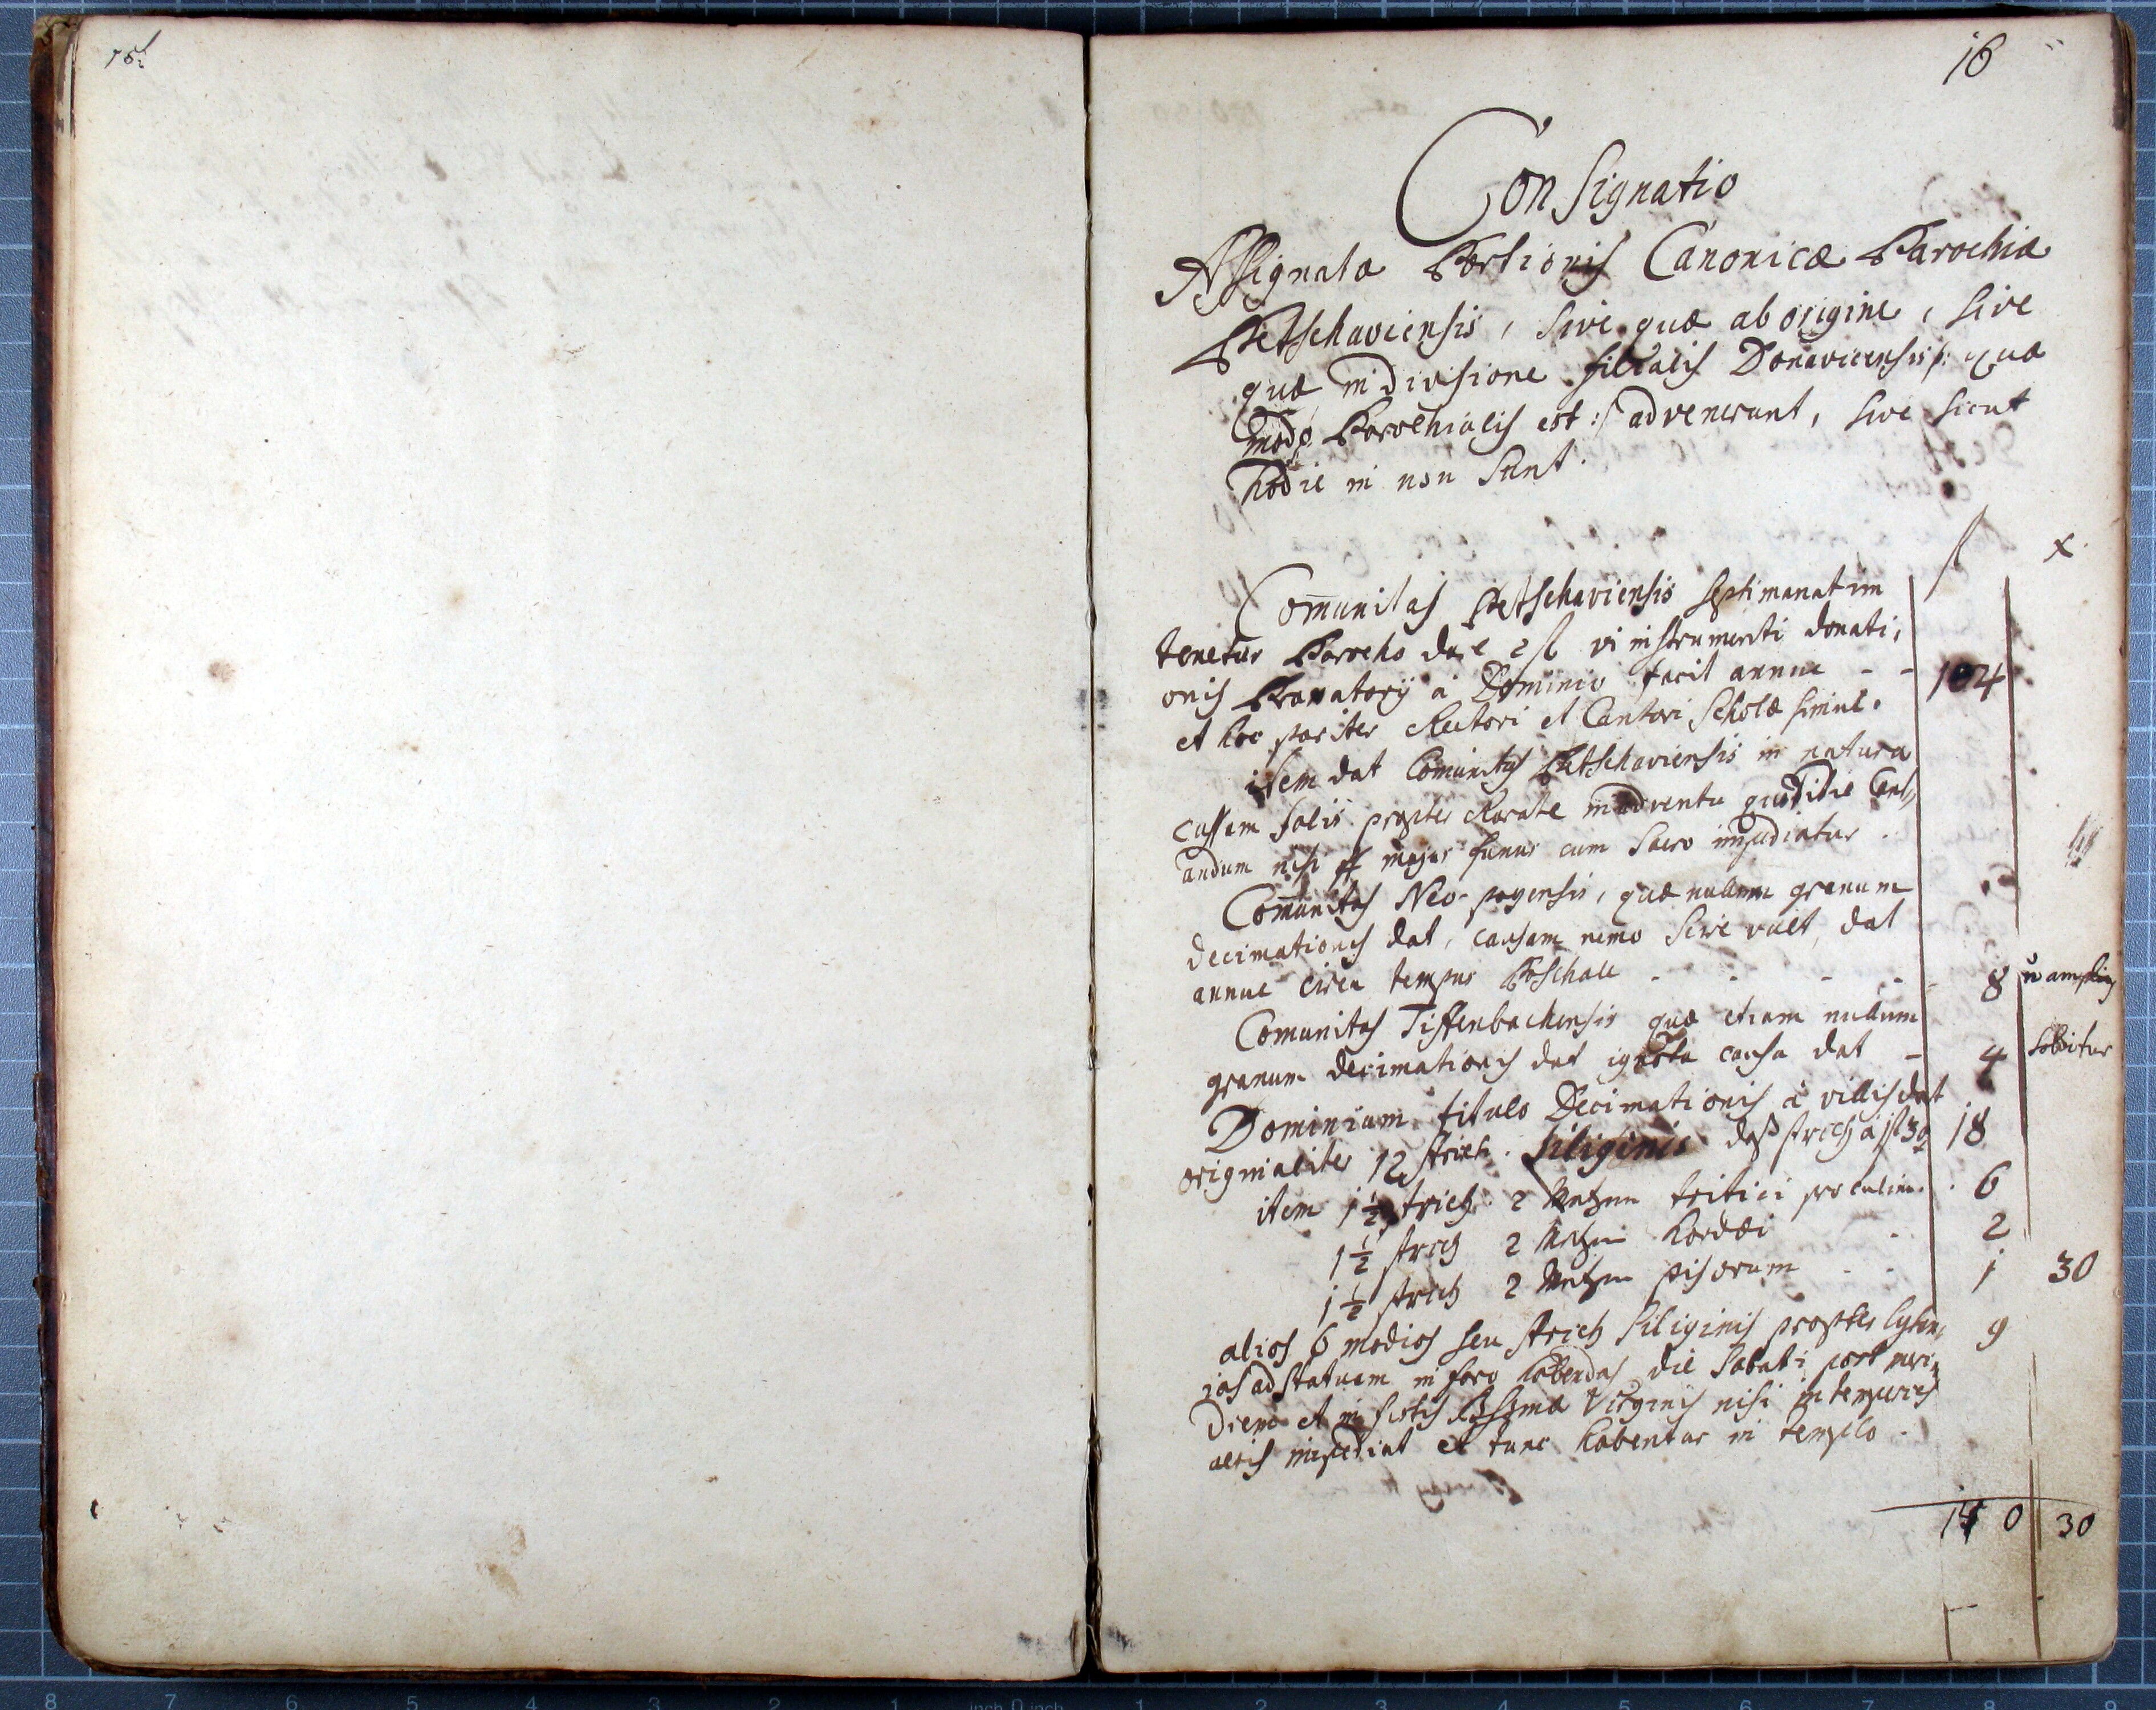 15b
16
Consignatio
Assignatæ Portionis Canonicæ Parochiæ
Petschaviensis, sive quæ ab origine, sive
quæ in divisione filialis Donavicensis /: quæ
modo Parochialis est :/ advenerunt, sive sicut
hodie in usu sunt.
fl x
Com̄unitas Petschaviensis septimanatim
tenetur Parocho dare 2 fl vi instrumenti donati,
onis a Dominio facit annue - - 104
et hoc pariter Rectori et Cantori Scholæ simul.
item dat Com̄unitas Petschaviensis in natura
cussem salis propter Rorate in adventu quotidie Cant,
andum nisi majus funus cum Sacro impediatur.
Com̄unitas Neo-pagensis, quæ nullum granum
decimationis dat, causam nemo scire vult, dat
annue circa tempus Paschale - - - - 8 non amplius
Comunitas Tiffenbachensis quæ etiam nullum solvitur
granum decimationis dat ignota causa dat - 4
Dominium titulo Decimationis à villis dat
originaliter 12 strich. siliginis daß strich a 1 fl 30 18
item 1 1/2 strich 2 Metzen tritici pro culina . 6
1 1/2 strich 2 Metzen hordæi - 2
1 1/2 strich 2 Metzen pisorum - - 1 30
alios 6 modios seu strich siliginis propter lytan, 9
ias ad statuam in foro habendas die Sabati post meri,
diem et in festis Virginis nisi intemperies
aeris impediat et tunc habentur in templo.
150 30